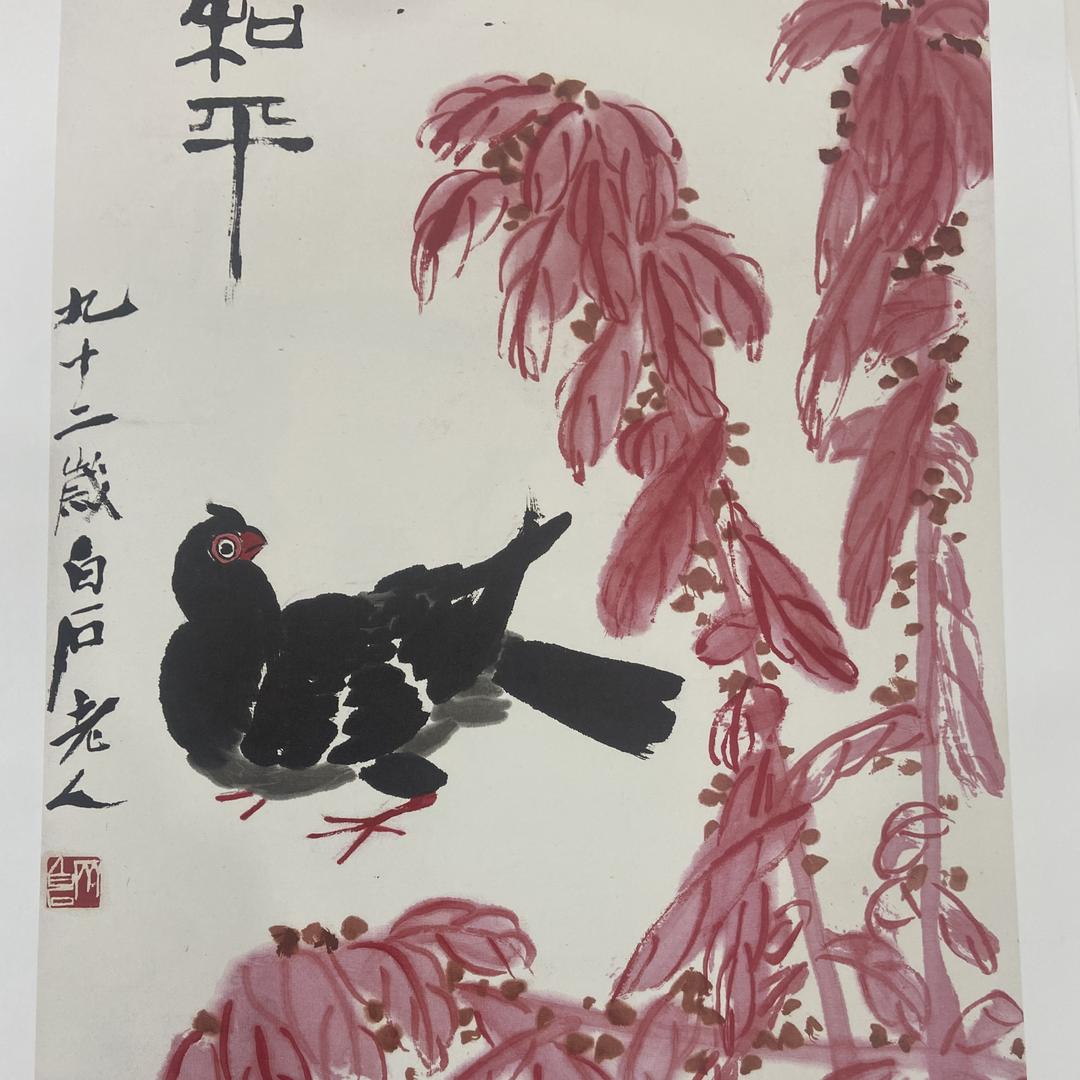 和平
九十二岁白石老人